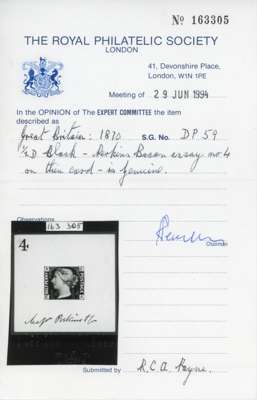 No 163305
THE ROYAL PHILATELIC SOCIETY
LONDON
41, Devonshire Place,
London, W1N 1PE
Meeting of 29 JUN 1994
In the OPINION of The EXPERT COMMITTEE the item
described as
Great Britain: 1870. S.G. No. DP 59
½D Black - Perkins Bacon essay no. 4
on thin card - is genuine.
Observations
163 305
Chairman
4
Submitted by R.C.A. Payne.